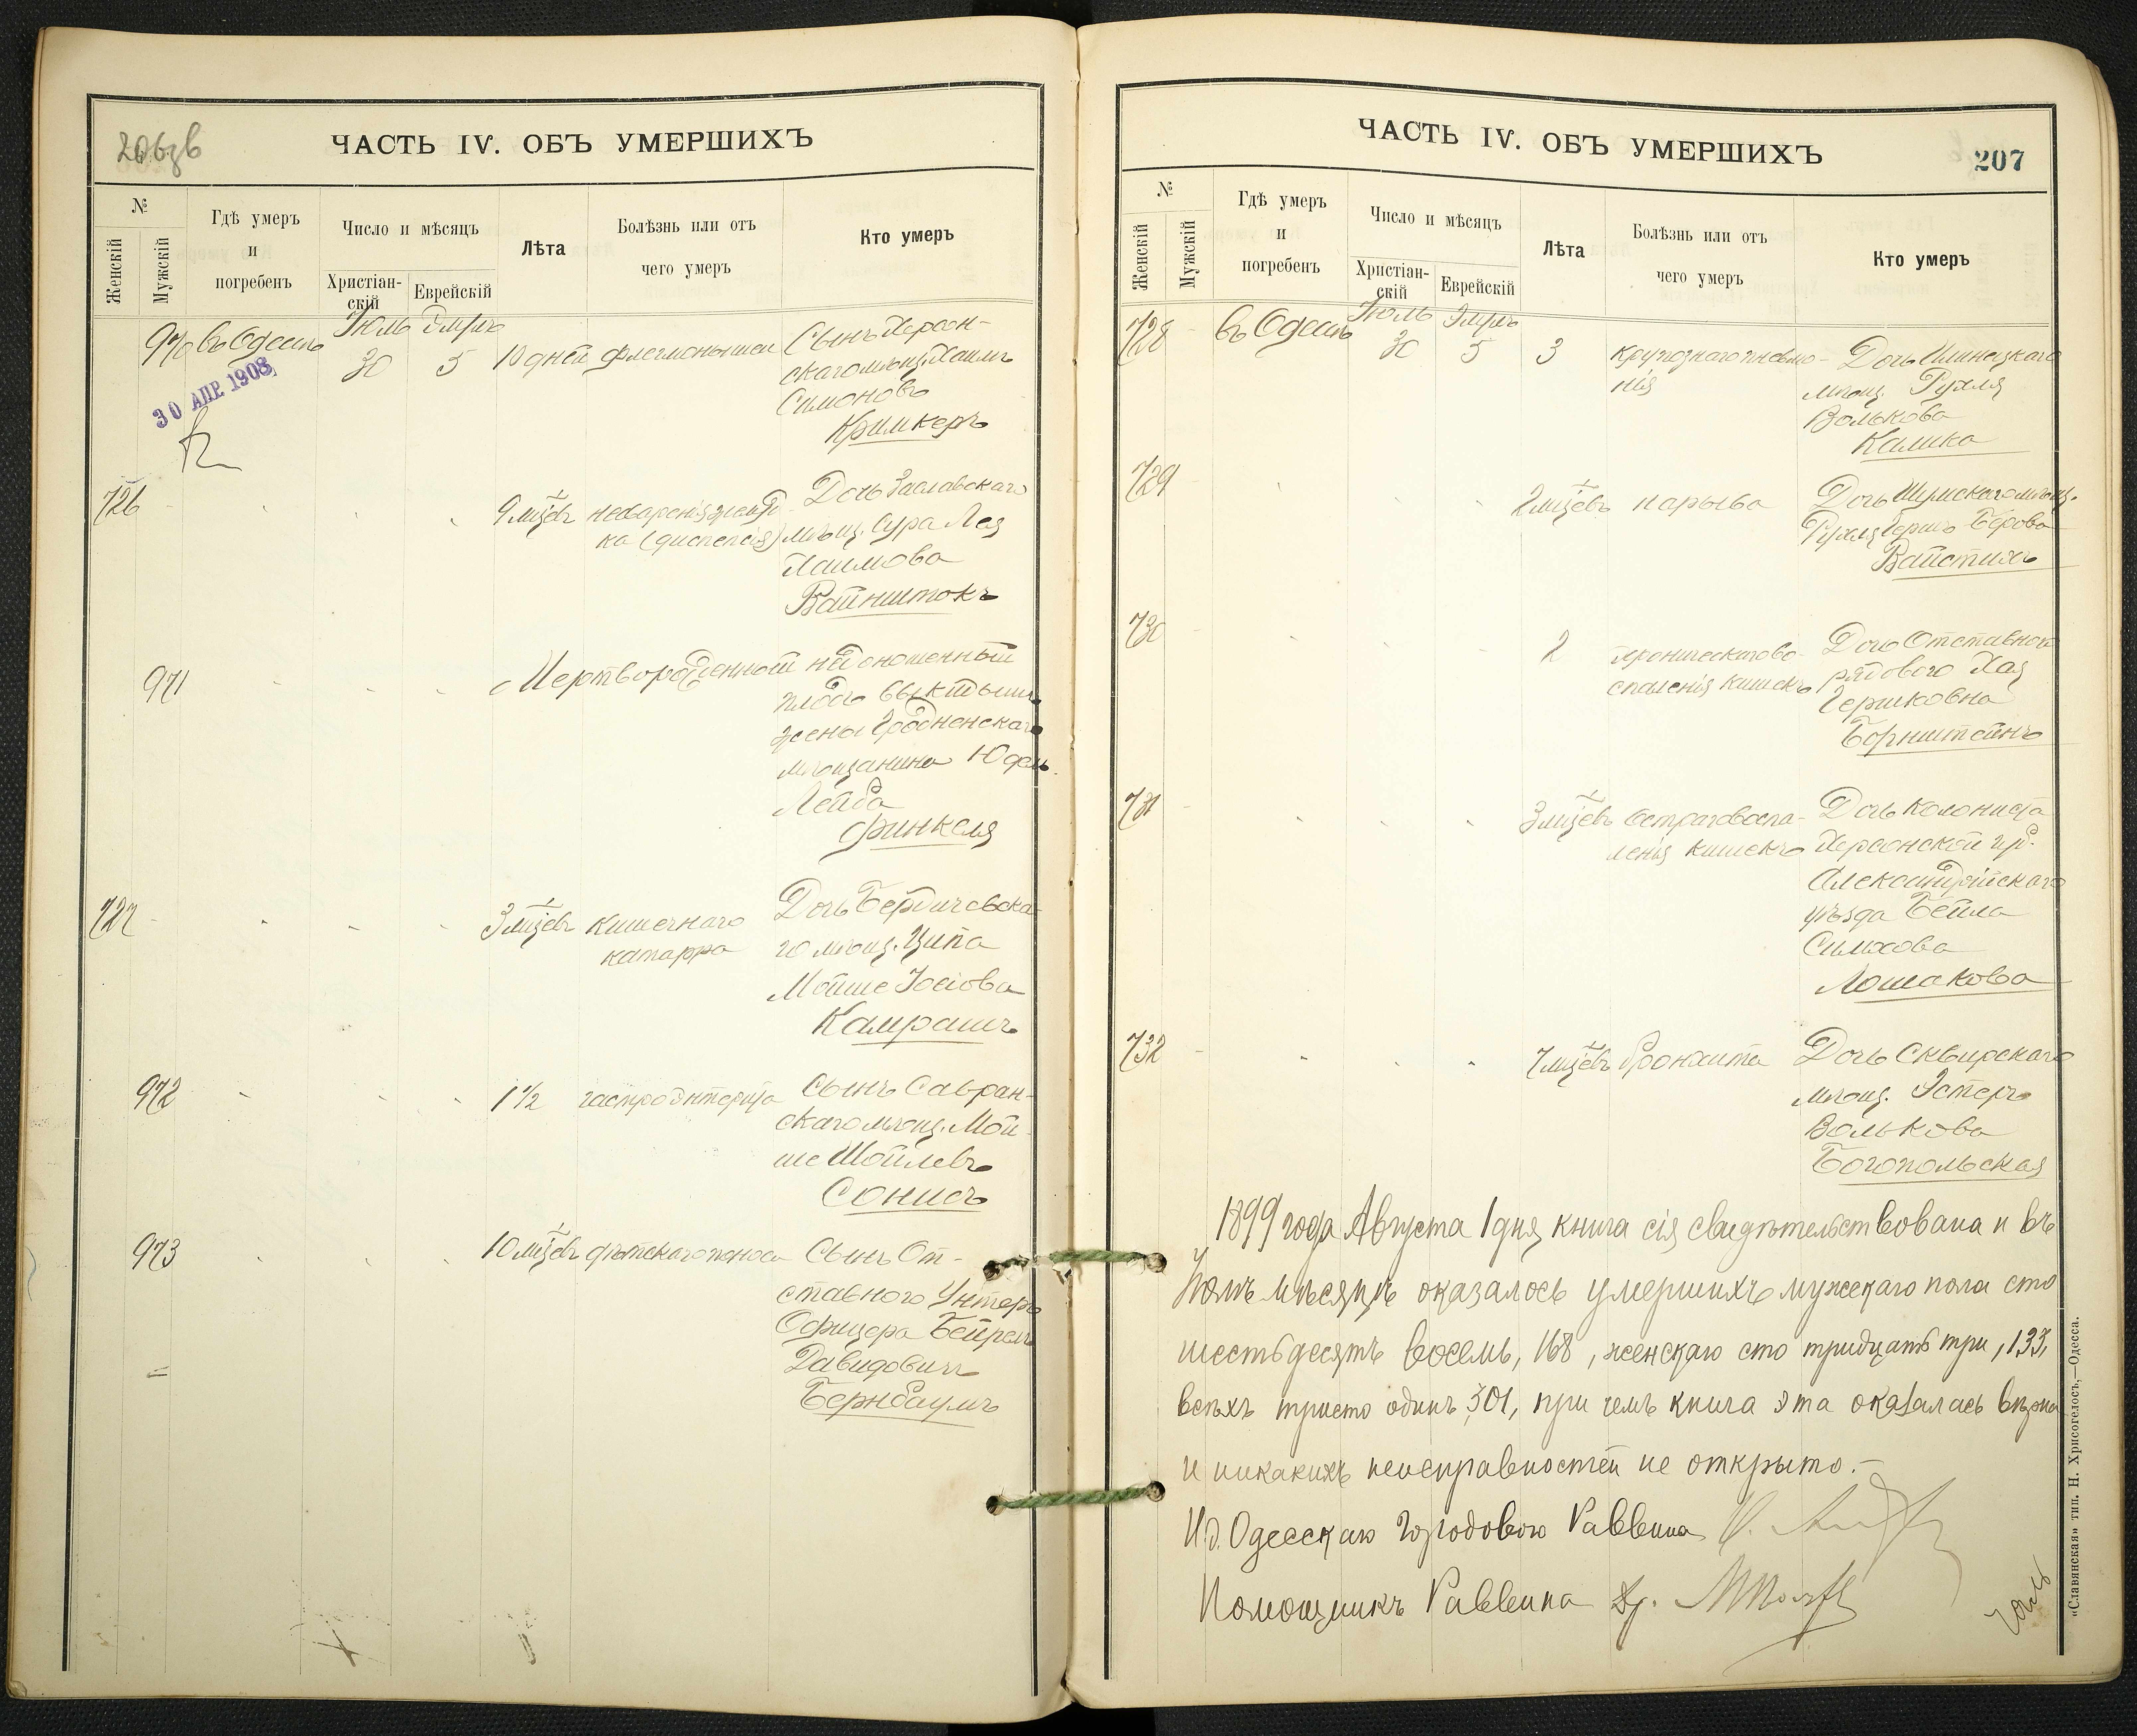 206 об
ЧАСТЬ IV. ОБЪ УМЕРШИХЪ
№
Женскій
Мужскій
Гдѣ умеръ
и
погребенъ
Число и мѣсяцъ
Христіан-
скій
Еврейскій
Лѣта
Болѣзнь или отъ
чего умеръ
Кто умеръ
970 въ Одессѣ Іюль 30 5 10 дней Сынъ Херсон-
скаго мѣщ. Хаимъ
Симоновъ
Кримкеръ
30 АПР. 1908
726 9 мцевъ несваренія желуд- Дочь Заславскаго
ка (диспепсія) мѣщ. Сура Лея
Хаимова
Вайнштокъ
971 Мертворожденный недоношенный
плодъ выкидышъ
жены Гродненскаго
мѣщанина Юдель
Лейба
Финкеля
727 3 мцевъ кишечнаго Дочь Бердичевска-
катарра го мѣщ. Ципа
Мойше Іосіова
Камрашъ
972 1 1/2 гастроэнтерита Сынъ Савран-
скаго мѣщ. Мой-
ше Шойлевъ
Сонисъ
973 10 мцевъ дѣтскаго поноса Сынъ От-
ставного Унтеръ
Офицера Бейрель
Давидовичъ
Бернбаумъ
ЧАСТЬ IV. ОБЪ УМЕРШИХЪ
207
№
Женскій
Мужскій
Гдѣ умеръ
и
погребенъ
Число и мѣсяцъ
Христіан-
скій
Еврейскій
Лѣта
Болѣзнь или отъ
чего умеръ
Кто умеръ
728 въ Одессѣ Іюль 30 5 3 крупознаго пневмо- Дочь
нія мѣщ. Рухля
Волькова
Калика
729 2 мцевъ нарыва Дочь Шумскаго мѣщ.
Рухля Гершъ Берова
Вайстихъ
730 2 хроническаго во- Дочь Отставного
спаленія кишекъ рядового Хая
Гершковна
Борнштейнъ
731 3 мцевъ остраго воспа- Дочь колониста
ленія кишекъ Херсонской губ.
Александрійскаго
уѣзда Бейла
Симхова
Лошакова
732 7 мцевъ бронхита Дочь Сквирскаго
мѣщ. Эстеръ
Волькова
Богопольская
1899 года Августа 1 дня книга сія свидѣтельствована и въ
Іюлѣ мѣсяцѣ оказалось умершихъ мужскаго пола сто
шестьдесятъ восемь, 168, женскаго сто тридцать три, 133,
всѣхъ триста одинъ, 301, при чемъ книга эта оказалась вѣрна
и никакихъ неисправностей не открыто.-
И.д. Одесскаго Городового Раввина
Помощникъ Раввина Др.
«Славянская» тип. Н. Хрисогелосъ,—Одесса.